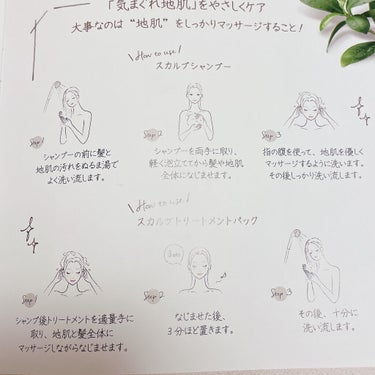 「気まぐれ地肌」をやさしくケア
大事なのは“地肌”をしっかりマッサージすること!
How to use
スカルプシャンプー
Step 1
シャンプーの前に髪と
地肌の汚れをぬるま湯で
よく洗い流します。
Step 2
シャンプーを両手に取り、
軽く泡立ててから髪や地肌
全体になじませます。
Step 3
指の腹を使って、地肌を優しく
マッサージするように洗います。
その後しっかり洗い流します。
How to use
スカルプトリートメントパック
Step 1
シャンプ後トリートメントを適量手に
取り、地肌と髪全体に
マッサージしながらなじませます。
3min
Step 2
なじませた後、
3分ほど置きます。
Step 3
その後、十分に
洗い流します。